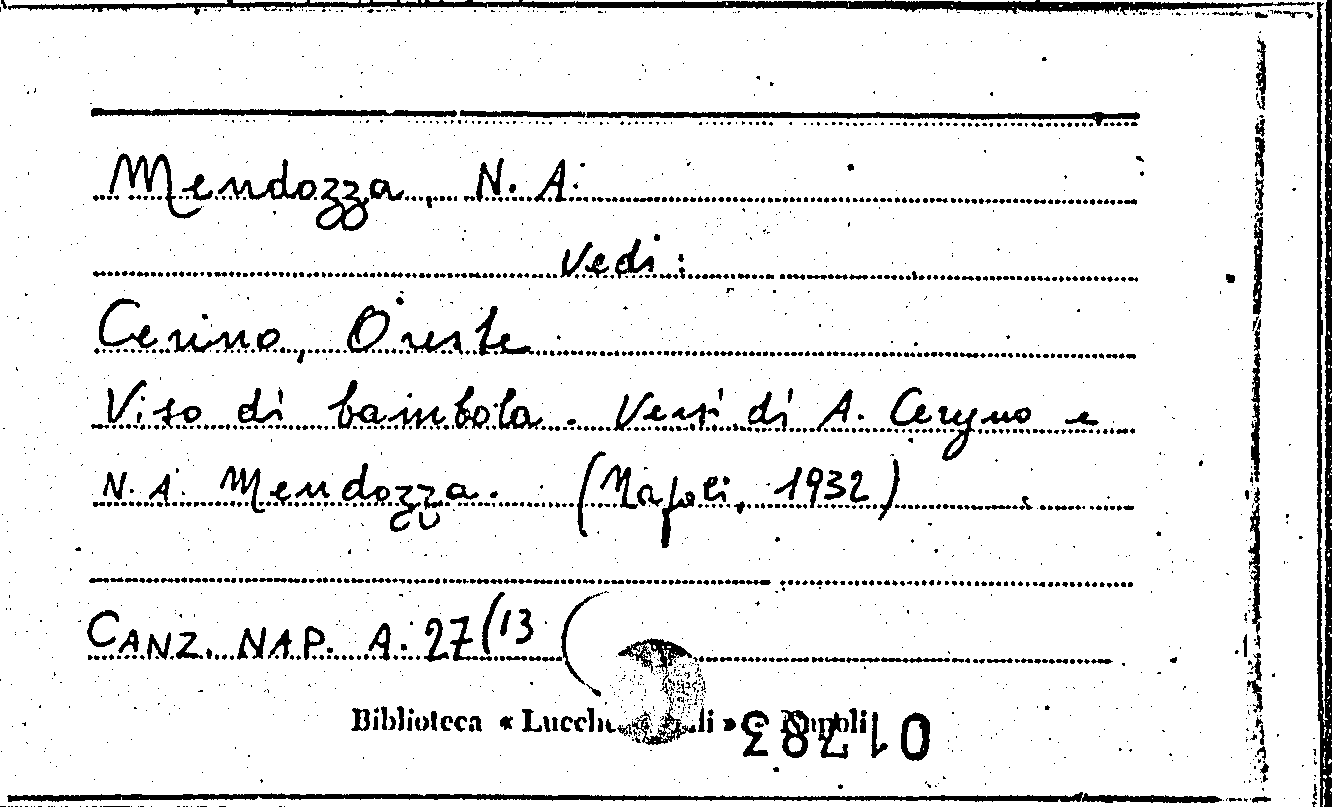 Mendozza, N. A.
Vedi:
Cerino, Oreste
Viso di bambola. Versi di A. Ceryno e
N. A. Mendozza. (Napoli, 1932)
CANZ. NAP. A. 27(13
Biblioteca « Lucchesi Palli » - Napoli